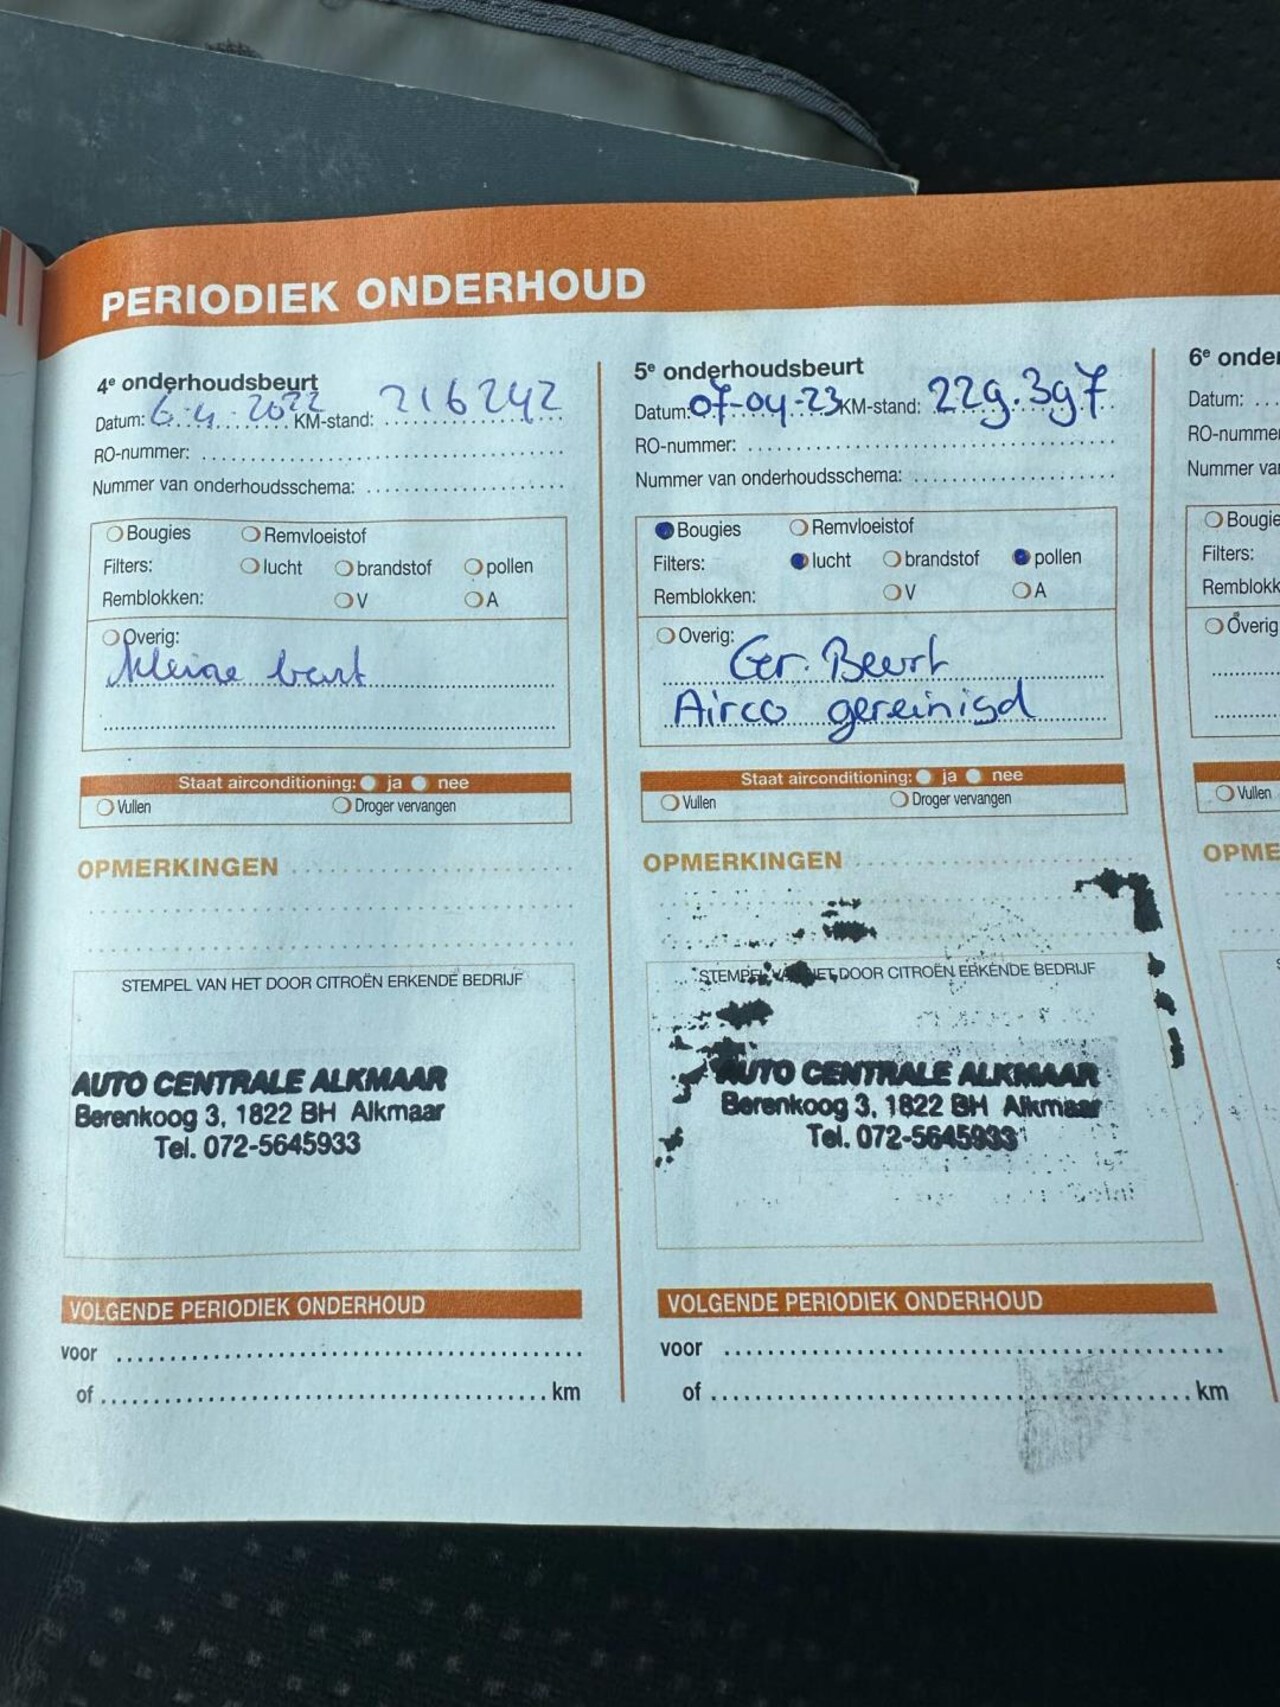 PERIODIEK ONDERHOUD
4e onderhoudsbeurt
Datum: 6-4-2022 KM-stand: 216242
RO-nummer:
Nummer van onderhoudsschema:
Bougies Remvloeistof
Filters: lucht brandstof pollen
Remblokken: V A
Overig:
kleine beurt
Staat airconditioning: ja nee
Vullen Droger vervangen
OPMERKINGEN
STEMPEL VAN HET DOOR CITROËN ERKENDE BEDRIJF
AUTO CENTRALE ALKMAAR
Berenkoog 3, 1822 BH Alkmaar
Tel. 072-5645933
VOLGENDE PERIODIEK ONDERHOUD
voor
of km
5e onderhoudsbeurt
Datum: 07-04-23 KM-stand: 229.397
RO-nummer:
Nummer van onderhoudsschema:
Bougies Remvloeistof
Filters: lucht brandstof pollen
Remblokken: V A
Overig:
Gr. Beurt
Airco gereinigd
Staat airconditioning: ja nee
Vullen Droger vervangen
OPMERKINGEN
STEMPEL VAN HET DOOR CITROËN ERKENDE BEDRIJF
AUTO CENTRALE ALKMAAR
Berenkoog 3, 1822 BH Alkmaar
Tel. 072-5645933
VOLGENDE PERIODIEK ONDERHOUD
voor
of km
6e onde
Datum:
RO-numme
Nummer va
Bougie
Filters:
Remblokk
Overig
Vullen
OPME